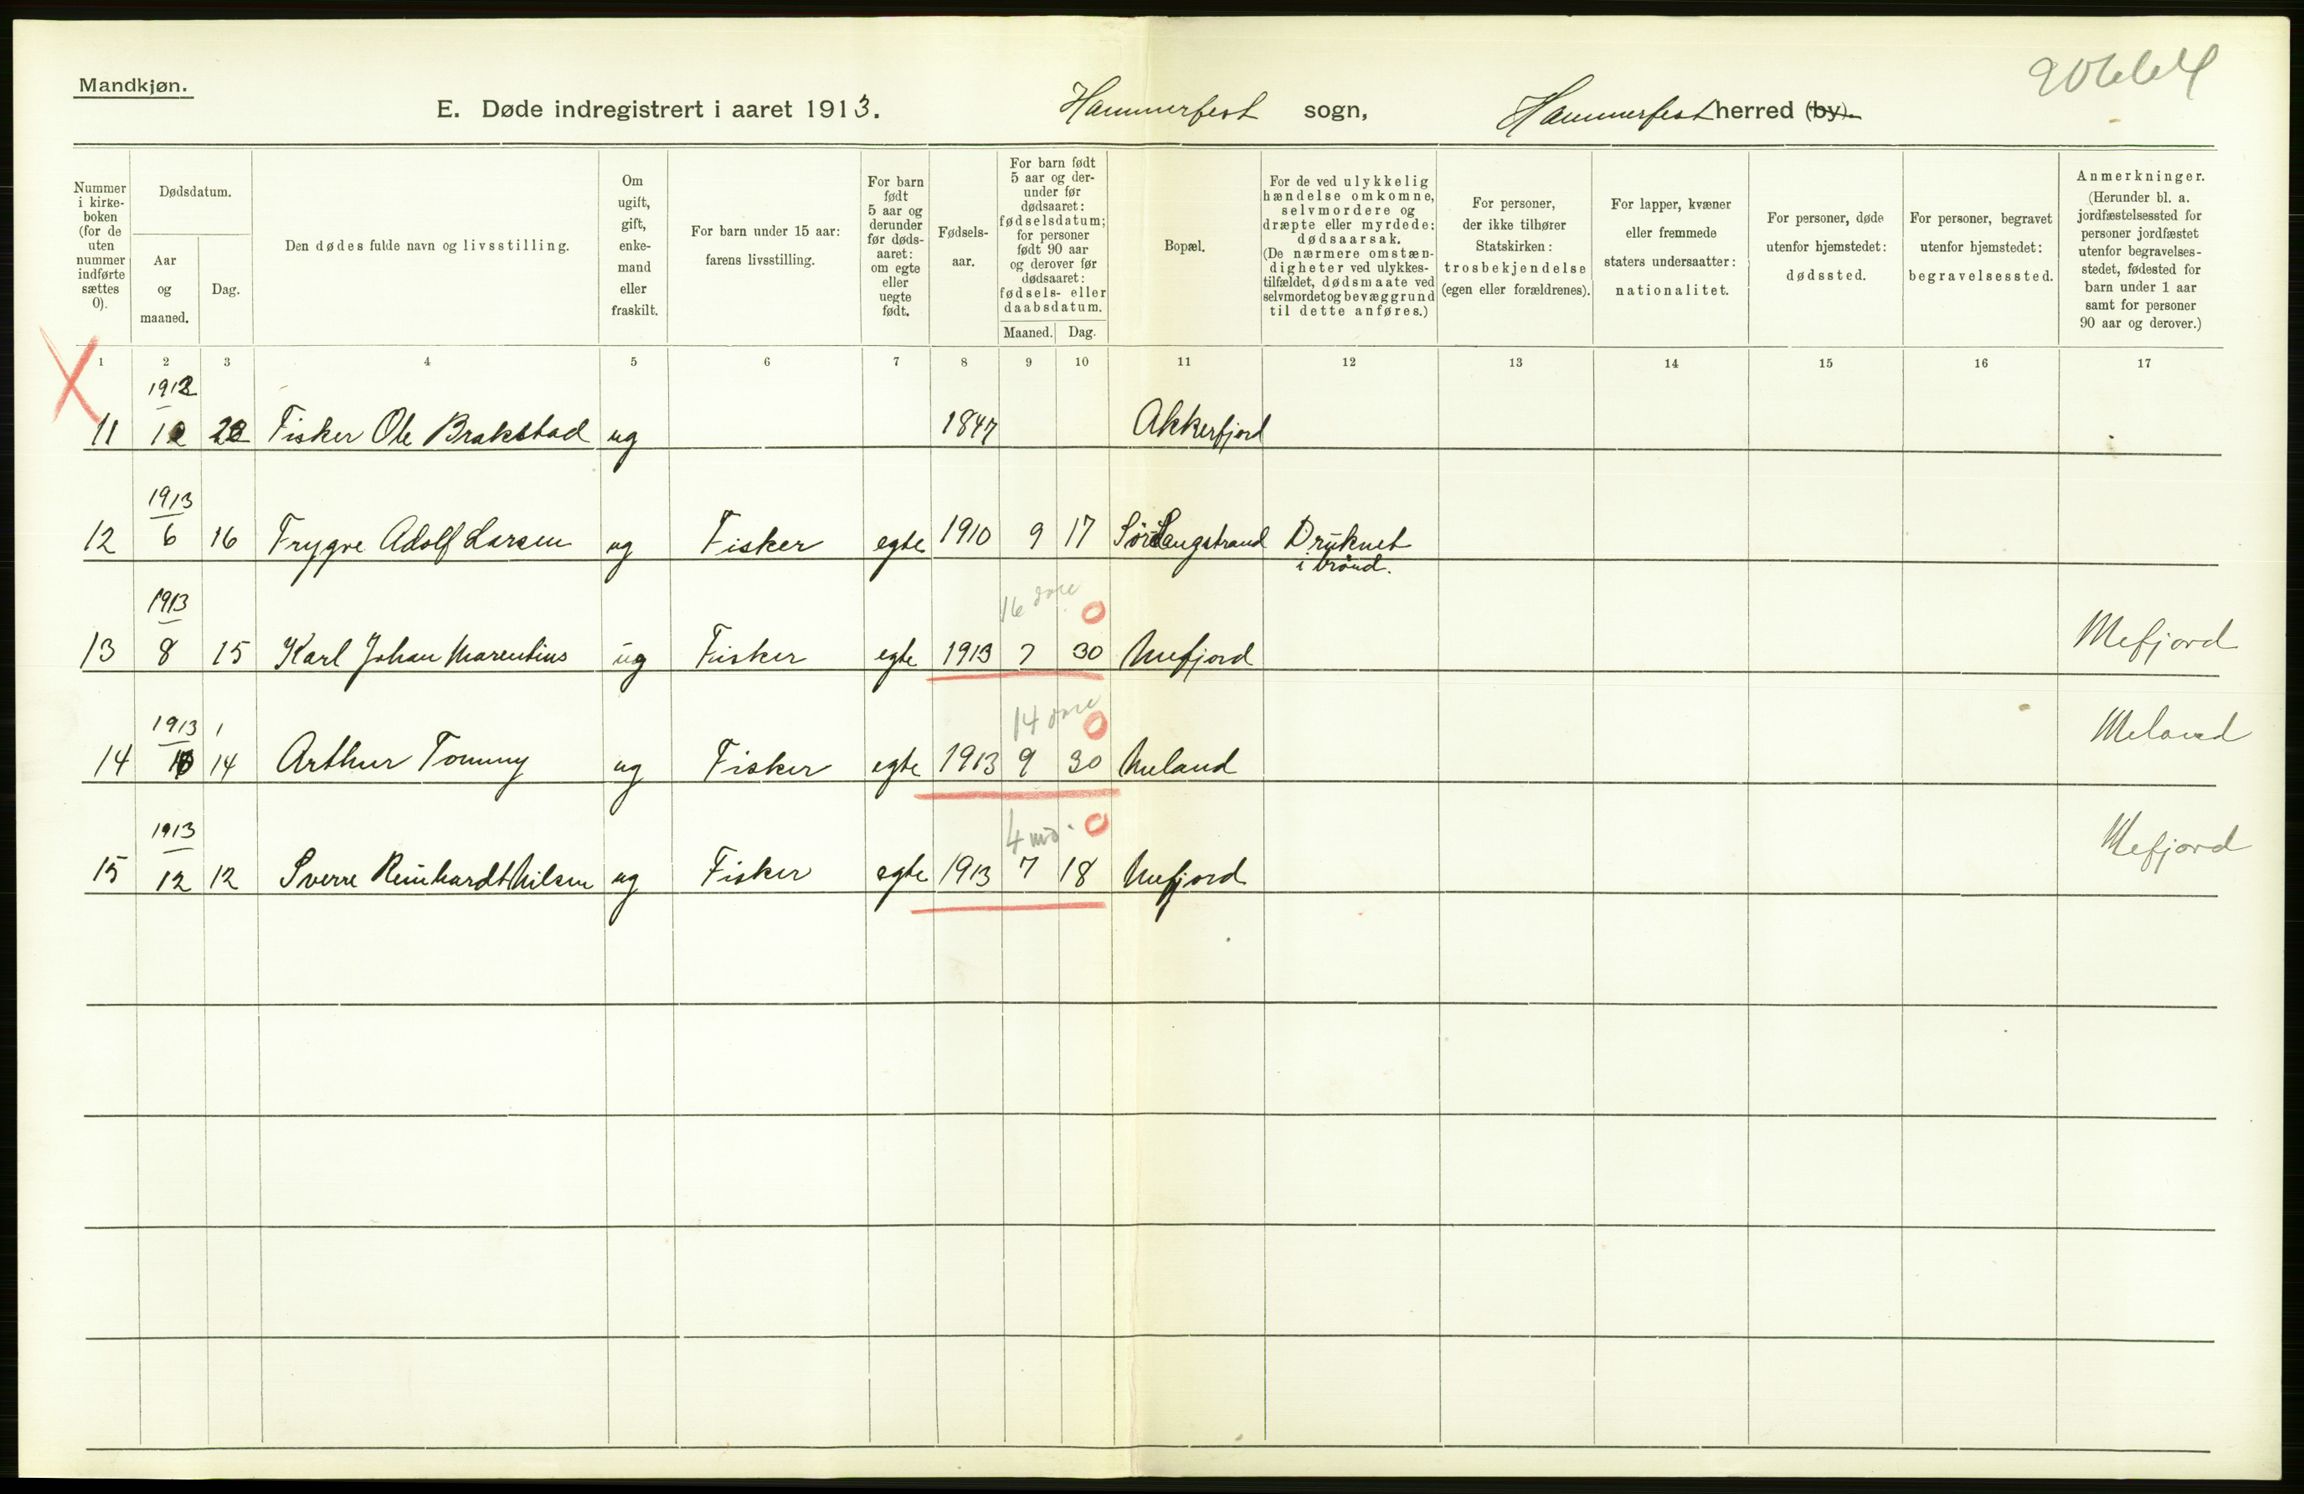 20664
Mandkjøn.
E. Døde indregistrert i aaret 1913. Hammerfest sogn, Hammerfest herred (by).
Nummer i kirke-boken (for de uten nummer indførte sættes 0).
Dødsdatum.
Aar og maaned.
Dag.
Den dødes fulde navn og livsstilling.
Om ugift, gift, enke-mand eller fraskilt.
For barn under 15 aar: farens livsstilling.
For barn født 5 aar og derunder før døds-aaret: om egte eller uegte født.
Fødsels-aar.
For barn født 5 aar og der-under før dødsaaret: fødselsdatum; for personer født 90 aar og derover før dødsaaret: fødsels- eller daabsdatum.
Maaned. Dag.
Bopæl.
For de ved ulykkelig hændelse omkomne, selvmordere og dræpte eller myrdede: dødsaarsak. (De nærmere omstæn-digheter ved ulykkes-tilfældet, dødsmaate ved selvmordet og bevæggrund til dette anføres.)
For personer, der ikke tilhører Statskirken: trosbekjendelse (egen eller forældrenes).
For lapper, kvæner eller fremmede staters undersaatter: nationalitet.
For personer, døde utenfor hjemstedet: dødssted.
For personer, begravet utenfor hjemstedet: begravelsessted.
Anmerkninger. (Herunder bl. a. jordfæstelsessted for personer jordfæstet utenfor begravelses-stedet, fødested for barn under 1 aar samt for personer 90 aar og derover.)
1 2 3 4 5 6 7 8 9 10 11 12 13 14 15 16 17
1912
11 12 Fisker Ole Brakstad ug 1847 Akkerfjord
1913
12 6 16 Trygve Adolf Larsen ug Fisker egte 1910 9 17 Sør Langstrand Druknet
i brønd.
1913 16 0
13 8 15 Karl Johan Marentius ug Fisker egte 1913 7 30 Mefjord Mefjord
1913 1 14 0
14 14 Arthur Tommy ug Fisker egte 1913 9 30 Meland Meland
1913 4 md. 0
15 12 12 Sverre Reinhardt Nilsen ug Fisker egte 1913 7 18 Mefjord Mefjord